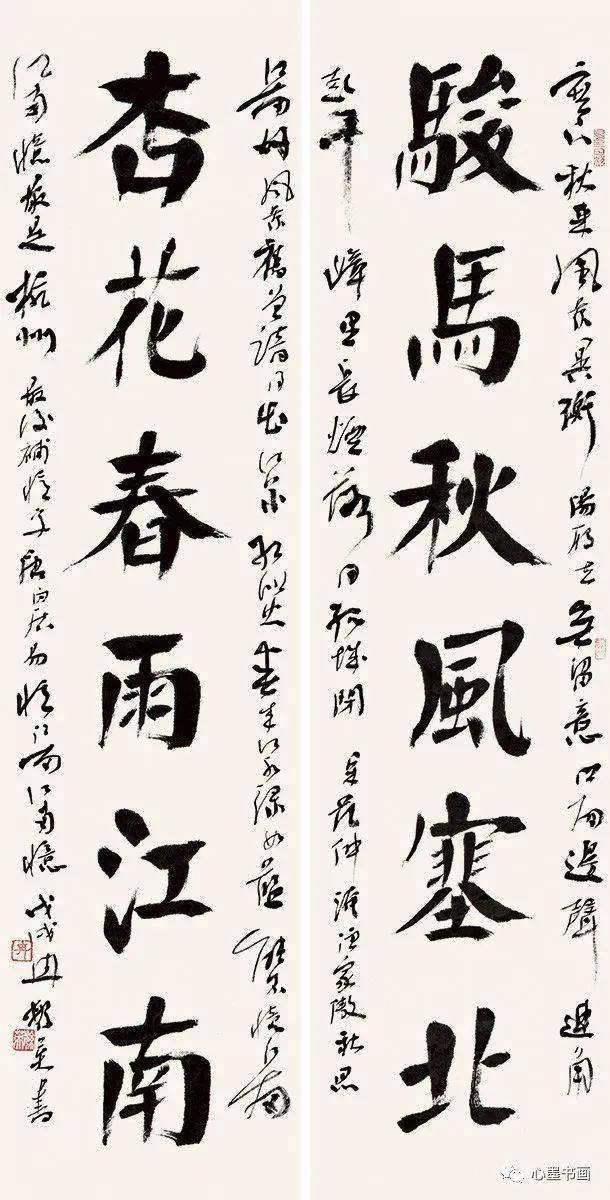 塞下秋来風景異衡陽雁去無留意四面邊聲連角
駿馬秋風塞北
起千嶂里長煙落日孤城閉 范仲淹漁家傲秋思
江南好風景舊曾諳日出江花紅勝火春来江水綠如藍能不憶江南
杏花春雨江南
江南憶最是杭州 唐白居易憶江南 江南憶 戊戌 書
心墨书画